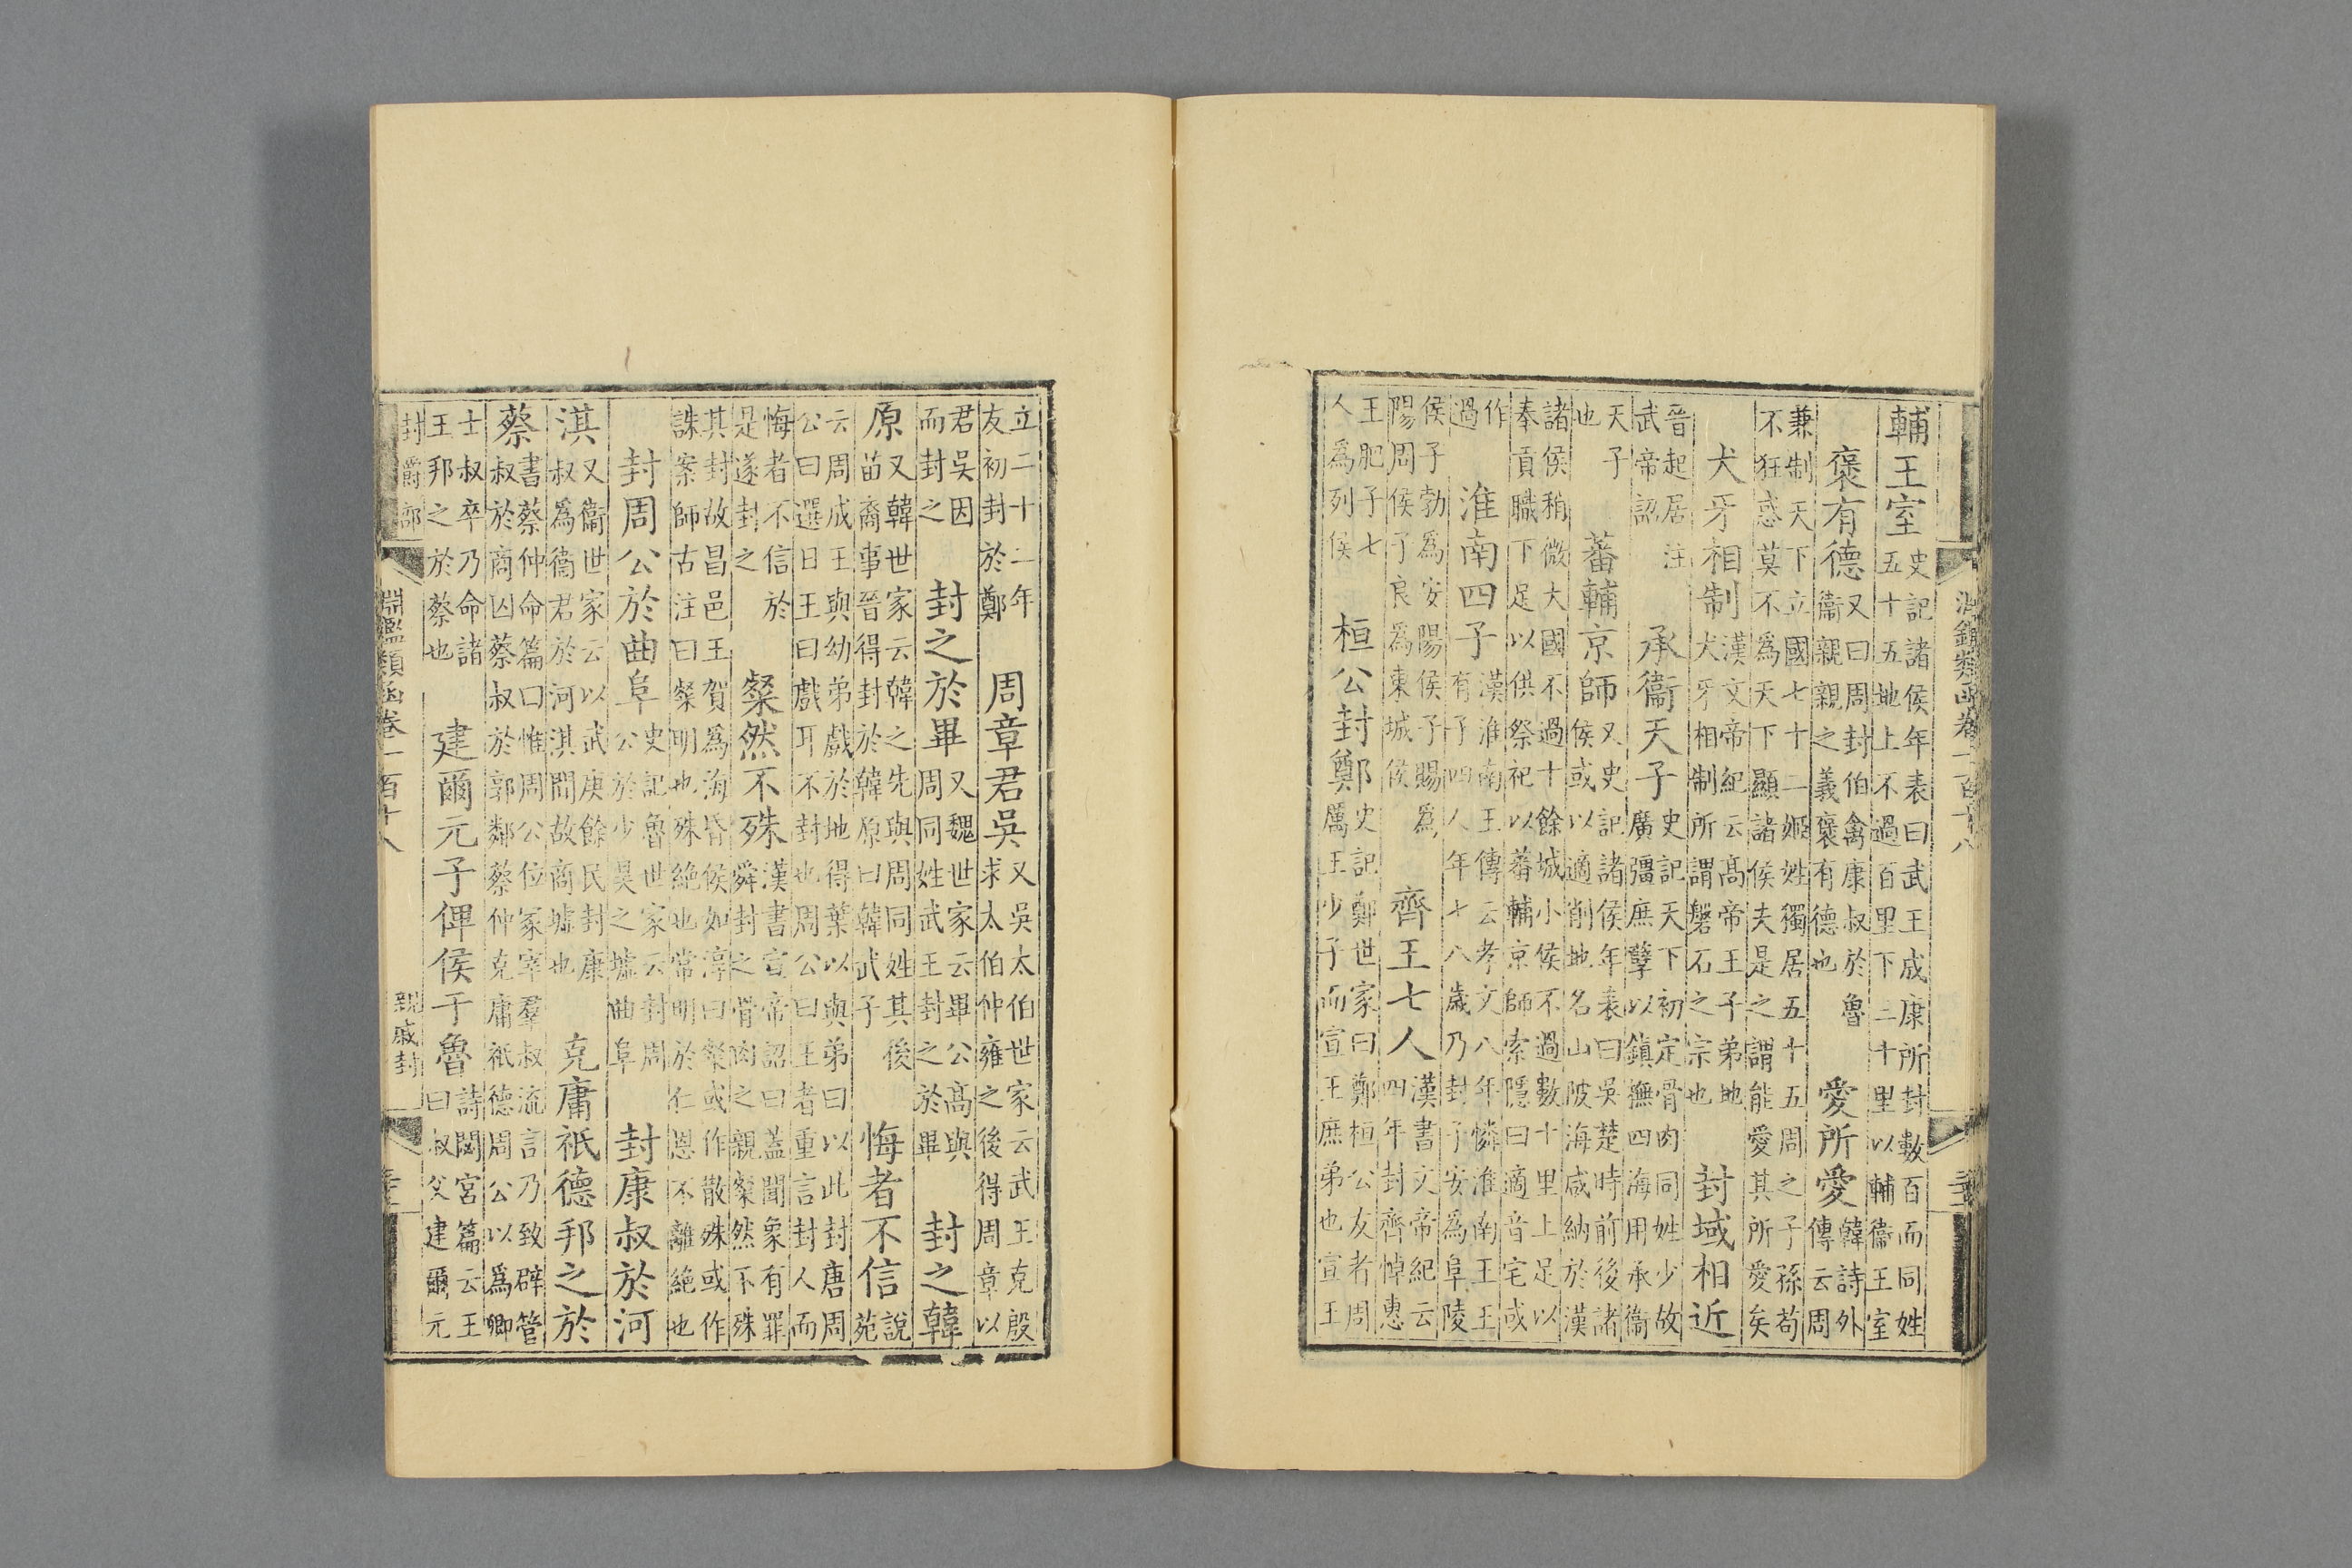 淵鑑類函卷一百十八
輔王室史記諸侯年表曰武王成康所封數百而同姓五十五地上不過百里下三十里以輔衞王室
褒有德又曰周封伯禽康叔於魯衞親親之義褒有德也 愛所愛韓詩外傳云周
兼制天下立國七十二姬姓獨居五十五周之子孫苟不狂惑莫不爲天下顯諸侯夫是之謂能愛其所愛矣
犬牙相制漢文帝紀云高帝王子弟地犬牙相制所謂磐石之宗也 封域相近
晉起居注武帝認 承衞天子史記天下初定骨肉同姓少故廣彊庶孽以鎮撫四海用承衞
天子也 蕃輔京師又史記諸侯年表曰吳楚時前後諸侯或以適削地名山陂海咸納於漢
諸侯稍微大國不過十餘城小侯不過數十里上足以奉貢職下足以供祭祀以蕃輔京師索隱曰適音宅或
作過 淮南四子漢淮南王傳云孝文八年憐淮南王王有子四人年七八歲乃封子安為阜陵
侯子勃為安陽侯子賜爲陽周侯子良為東城侯 齊王七人漢書文帝紀云四年封齊悼惠
王肥子七人為列侯 桓公封鄭史記鄭世家曰鄭桓公友者周厲王少子而宣王庶弟也宣王
立二十二年友初封於鄭 周章君吳又吳太伯世家云武王克殷求太伯仲雍之後得周章以
君吳因而封之 封之於畢又魏世家云畢公高與周同姓武王封之於畢 封之韓
原又韓世家云韓之先與周同姓其後苗裔事晉得封於韓原曰韓武子 悔者不信說苑
云周成王與幼弟戲於地得葉以與弟曰以此封唐周公曰選日王曰戲耳不封也周公曰王者重言封人而
悔者不信於是遂封之 粲然不殊漢書宣帝詔曰蓋聞象有罪舜封之骨肉之親粲然不殊
其封故昌邑王賀爲海昏侯如淳曰粲或作散殊或作誅案師古注曰粲明也殊絶也常明於仁恩不離絶也
封周公於曲阜史記魯世家云封周公於少昊之墟曲阜 封康叔於河
淇又衞世家云以武庚餘民封康叔爲衞君於河淇間故商墟也 克庸祇德邦之於
蔡書蔡仲命篇曰惟周公位冢宰羣叔流言乃致辟管叔於商囚蔡叔於郭鄰蔡仲克庸祇德周公以爲卿
士叔卒乃命諸王邦之於蔡也 建爾元子俾侯于魯詩閟宮篇云王曰叔父建爾元
封爵部 淵鑑類函卷一百十八 親戚封